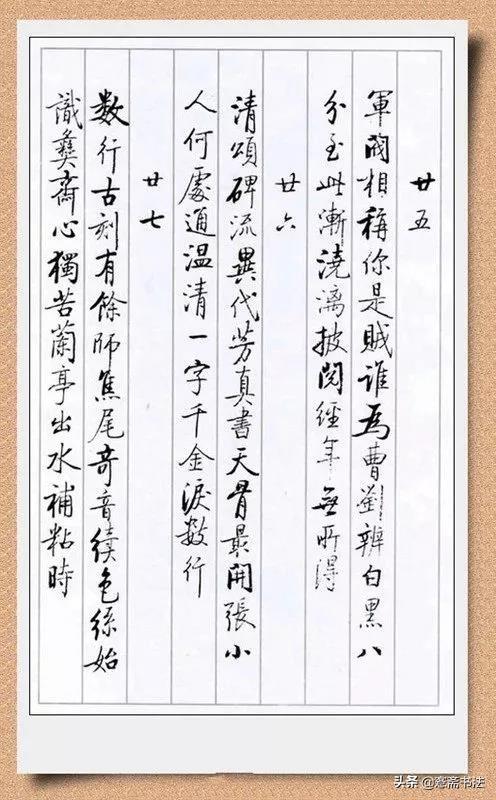 廿五
軍閥相稱你是賊誰為曹劉辨白黑八
分至此漸澆漓披閱經年無所得
廿六
清頌碑流異代芳真書天骨最開張小
人何處通温清一字千金淚数行
廿七
数行古刻有餘師焦尾奇音續色絲始
識彝齋心獨苦蘭亭出水補粘時
头条 @蹇斋书法